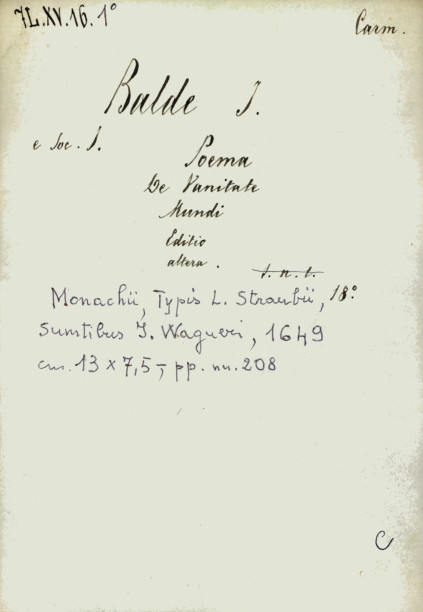 7L.XV.16.1°
Carm.
Balde J.
e Soc. J.
Poema
De Vanitate
Mundi
Editio
altera.
s. n. t.
18°
Monachii, Typis L. Straubii,
Sumtibus J. Wagneri, 1649
cm. 13 x 7,5 -, pp. nn. 208
C